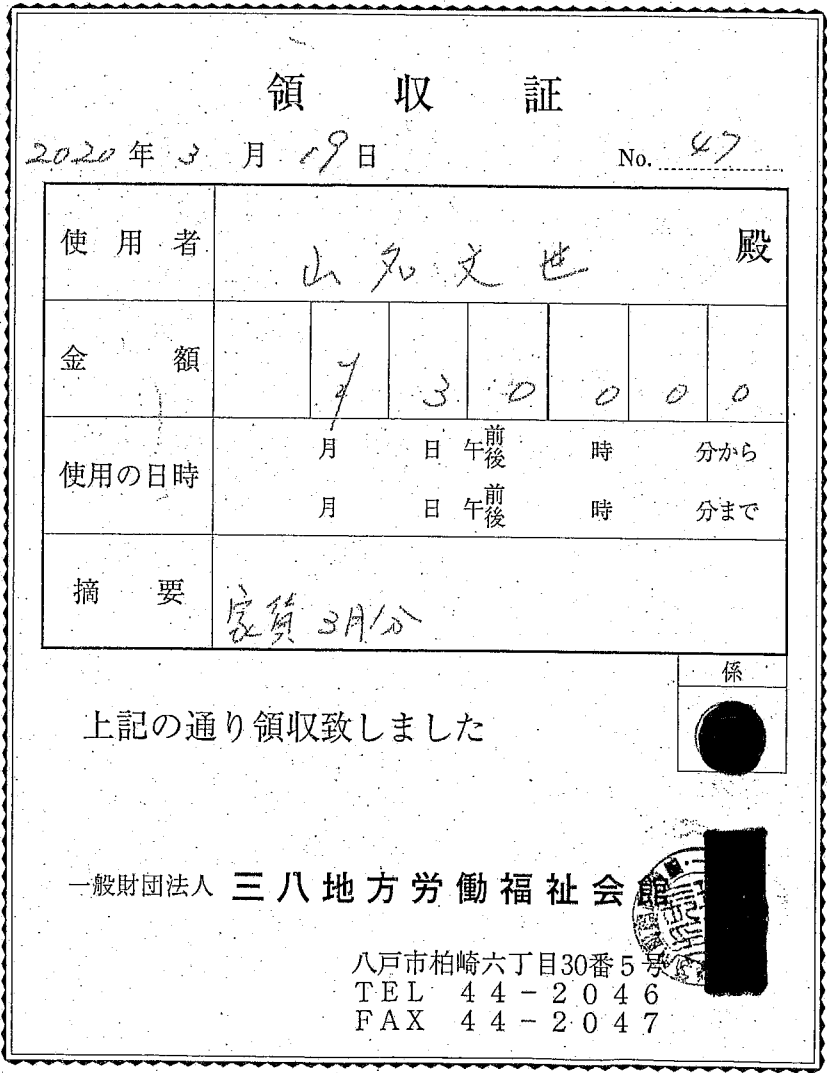 領収証
2020年3月19日 No. 47
使用者 山名文世 殿
金額 ¥30000
使用の日時 月 日 午前後 時 分から
月 日 午前後 時 分まで
摘要 家賃3月分
係
上記の通り領収致しました
一般財団法人 三八地方労働福祉会館
八戸市柏崎六丁目30番5号
TEL 44-2046
FAX 44-2047